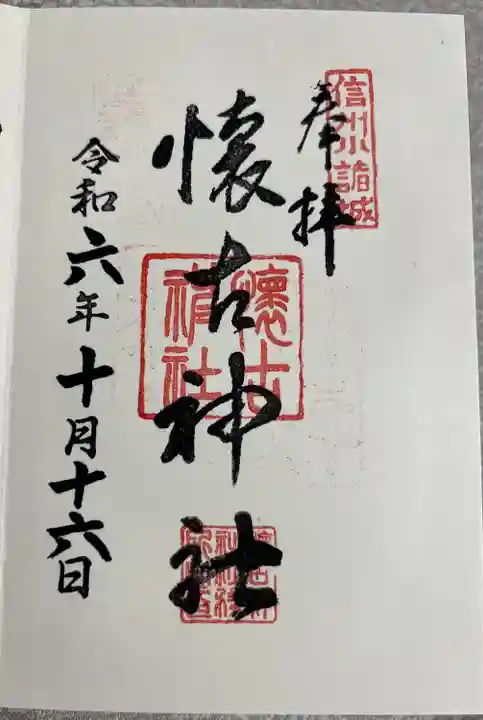 信州小諸城
奉拝
懐古神社
懐古
神社
令和六年十月十六日